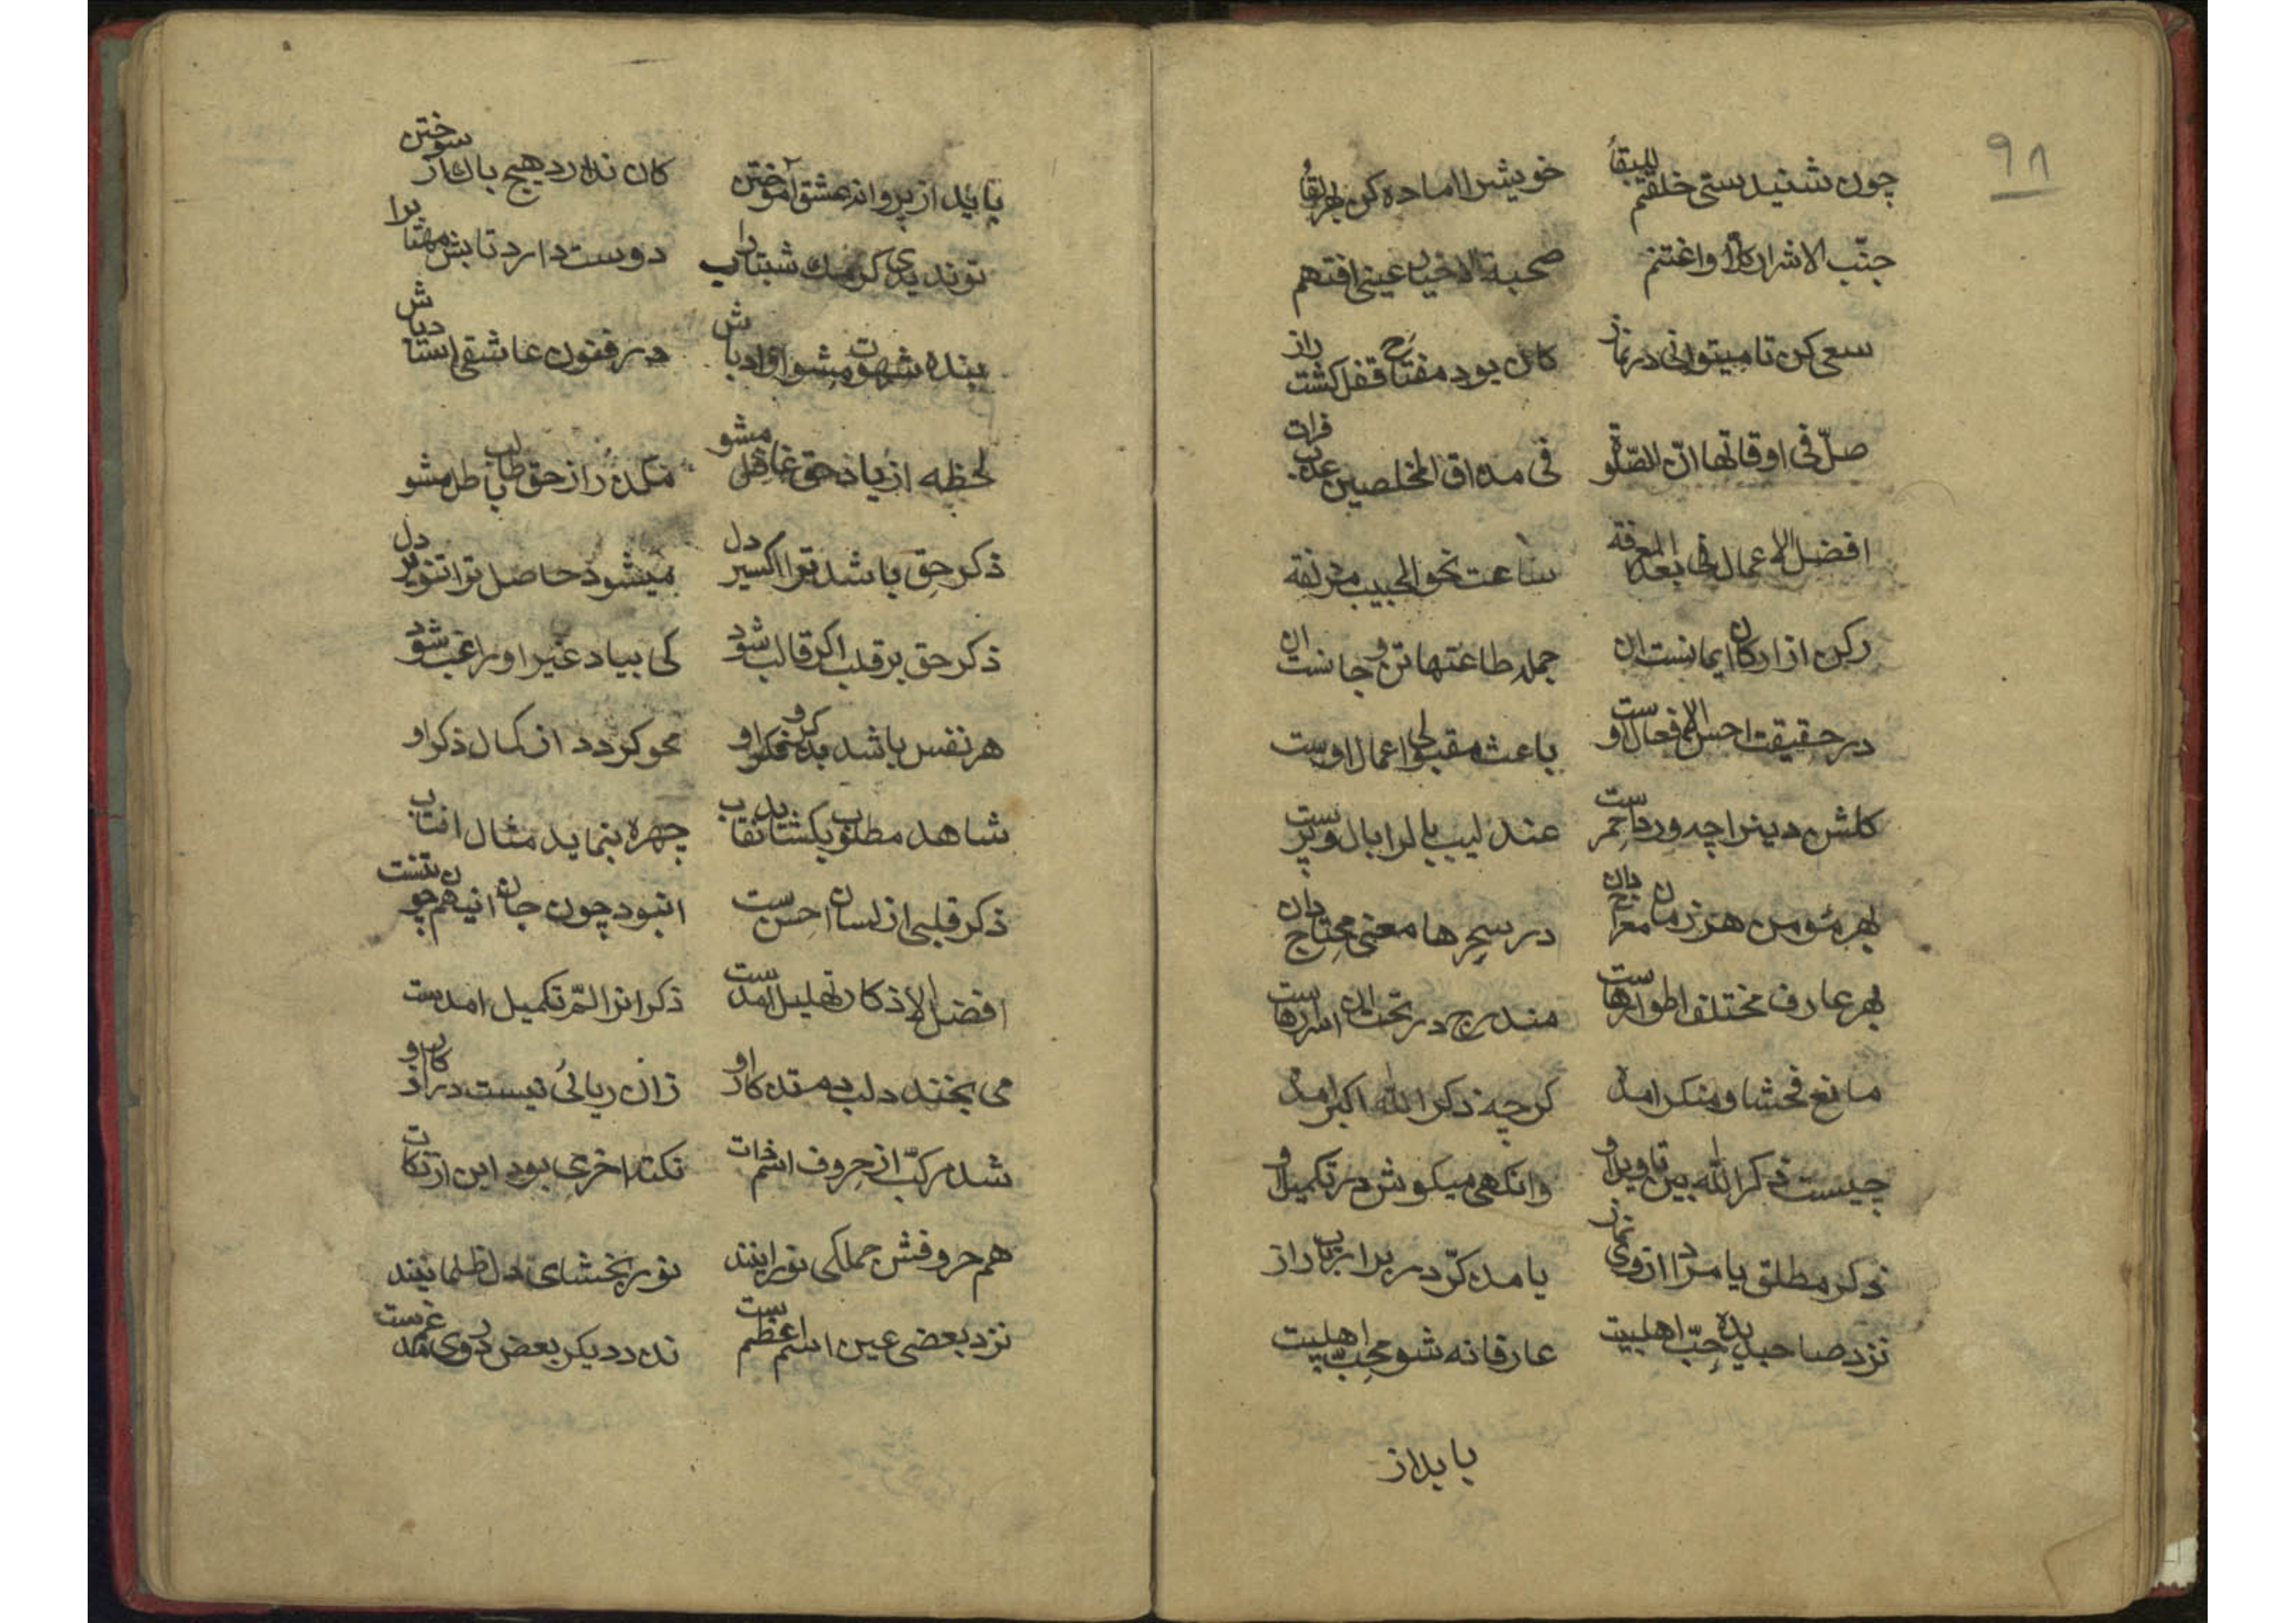 ۹۸
چون شنیدستی خلقتم للبقا خویشرا اماده کن بهر لقا
جنّب الاشرار کلّا واغتنم صحبة الاخیار عینی افتهم
سعی کن تا میتوانی در نماز کان بود مفتاح قفل کشت راز
صلّ فی اوقاتها انّ الصّلوة فی مذاق المخلصین عذب فرات
افضل الاعمال فی بعد المعرفة ساعت نحو الحبیب مزلفة
رکن از ارکان ایمانست این جمله طاعتها تن و جانست این
در حقیقت احسن الافعال اوست باعث مقبولی اعمال اوست
کلشن دینرا چه ورد احمرست عندلیب بالرا بال و پرست
بهر مؤمن هر زمان معراج دان در سحرها معنی محتاج دان
بهر عارف مختلف اطوارهاست مندرج در تحت ان اسرارهاست
مانع فحشا و منکر امد کرچه ذکر الله اکبر امد
چیست ذکر الله بین تاویل او وانکهی میکوش در تکمیل او
ذکر مطلق یا مراد از وی نماز یا مدکّر در برابر باب راز
نزد صاحبدیده حبّ اهلبیت عارفانه شو محبّ اهلبیت
باید از
باید از پروانه عشق آموختن کان ندارد هیچ باک از سوختن
تو ندیدی کرمک شبتاب را دوست دارد تابش مهتاب را
بنده شهوت مشو اوادباش در فنون عاشقی استاد باش
لحظه از یاد حق غافل مشو مگذر از حق طالب باطل مشو
ذکر حق باشد ترا اکسیر دل میشود حاصل ترا تنویر دل
ذکر حق بر قلب اکر قالب شود کی بیاد غیر او راغب شود
هر نفس باشد بذکر و فکر او محو کردد از کمال ذکر او
شاهد مطلوب بکشاید نقاب چهره بنماید مثال افتاب
ذکر قلبی از لسان احسن ست انبود چون جان انیهم چون تنست
افضل الاذکار تهلیل امدست ذکر انرا المّ تکمیل امدست
می بخنبد دلب به تذکار او زان ریائی نیست در اذکار او
شد مرکّب از حروف اسم ذات نکته اخری بود این از نکات
هم حروفش جملکی نورانیند نوربخشای دل ظلمانیند
نزد بعضی عین اسم اعظم ست نزد دیکر بعض دروی مدغم ست